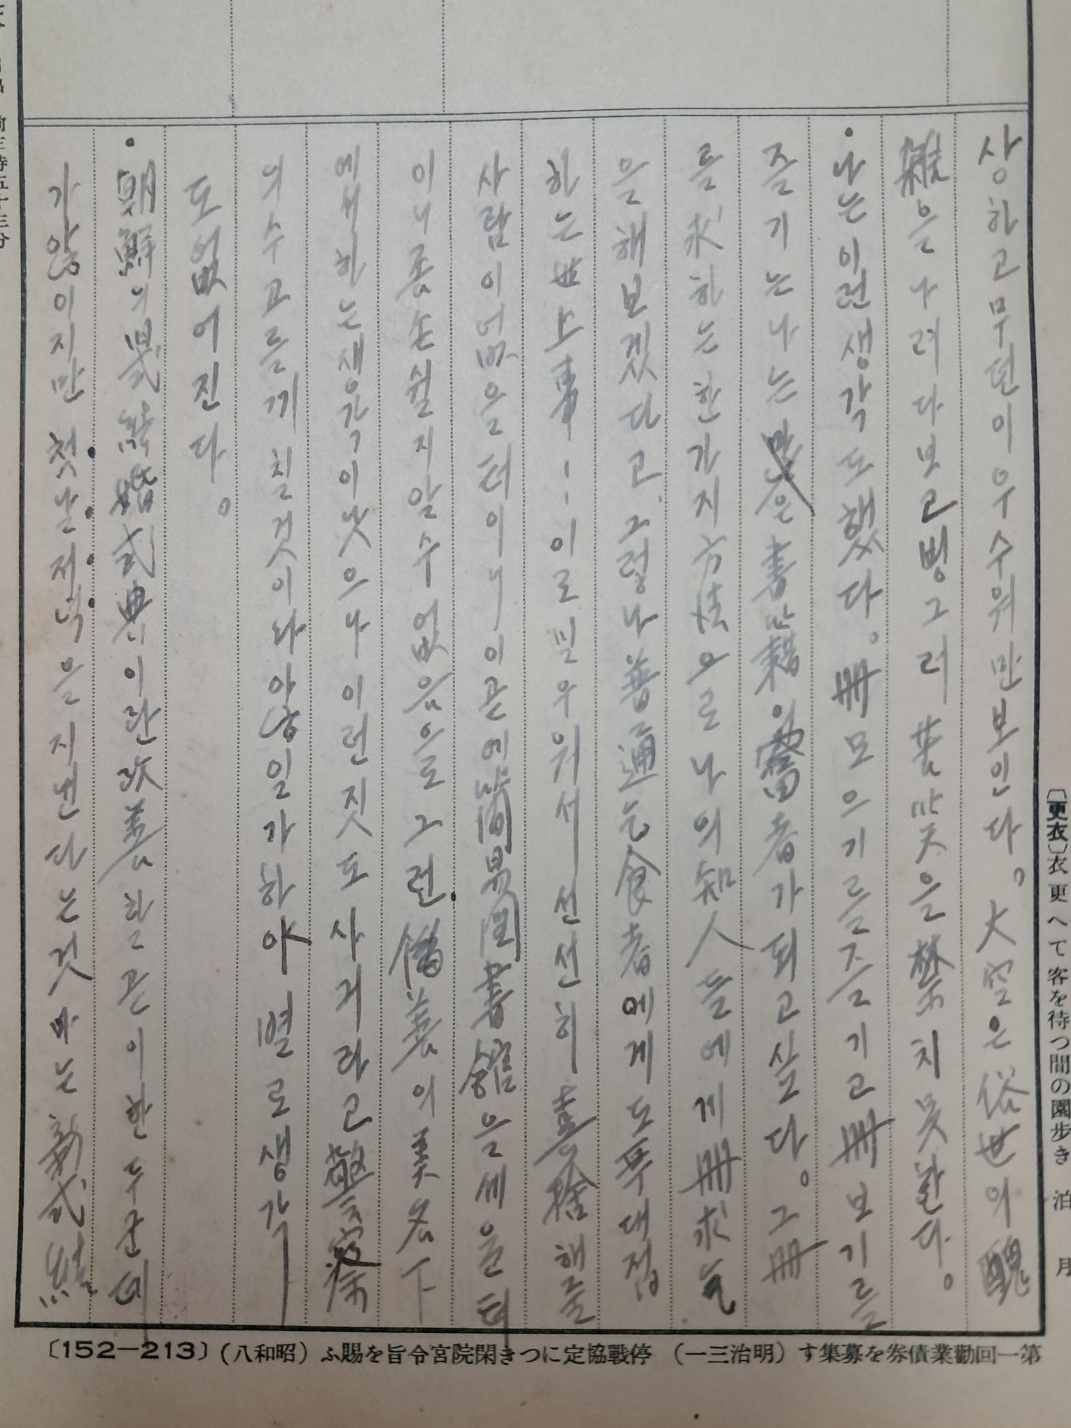 상하고무던이우수워만보인다。大空은俗世의醜
雜을나려다보고빙그러苦笑을禁치못한다。
•나는이런생각도했다。冊모으기를즐기고冊보기를
즐기는나는書籍의富者가되고싶다。그冊
를求하는한가지方法으로나의知人들에게冊求乞
을해보겠다고. 그렇나普通乞食者에게도푸대접
하는世上事!! 이로밀우워서 선선히 喜捨해들
사람이없을터이니이곧에簡易圖書舘을세울터
이니좀손쉴지알수없음으로그런僞善의美名下
에서하는생각이낫으나이런짓도사기라고警察
의수고를끼칠것이라야일가하야 별로생각
도없어진다。
•朝鮮의昏式結婚式典이란改善할곧이한두군데
가않이지만 첫날저녁을지낸다는것마는新式結
〔更衣〕衣更へて客を待つ間の園步き 泊月
第一回勸業債券を募集す（明治三一） 停戰協定につき閑院宮令旨を賜ふ（昭和八）〔152—213〕